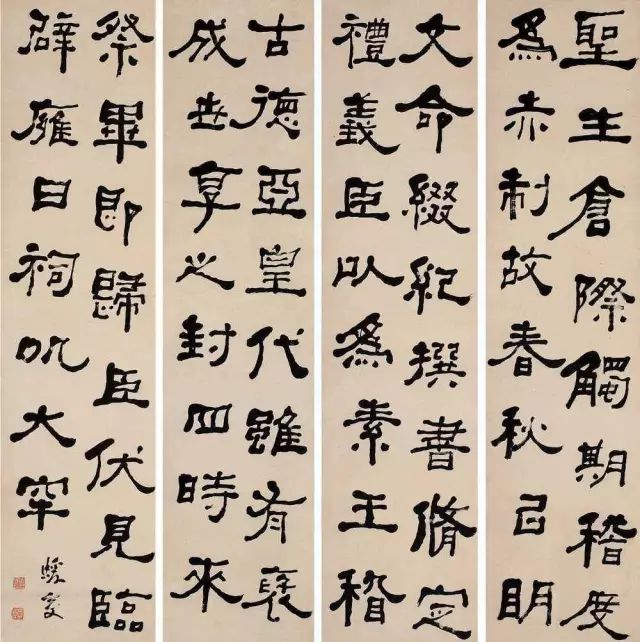 聖生倉際觸期稽度
爲赤制故春秋已明
文命綴紀撰書脩定
禮義臣以爲素王稽
古德亞皇代雖有襃
成世享之封四時來
祭畢即歸臣伏見臨
辟廱日祠以大牢
蝯叟